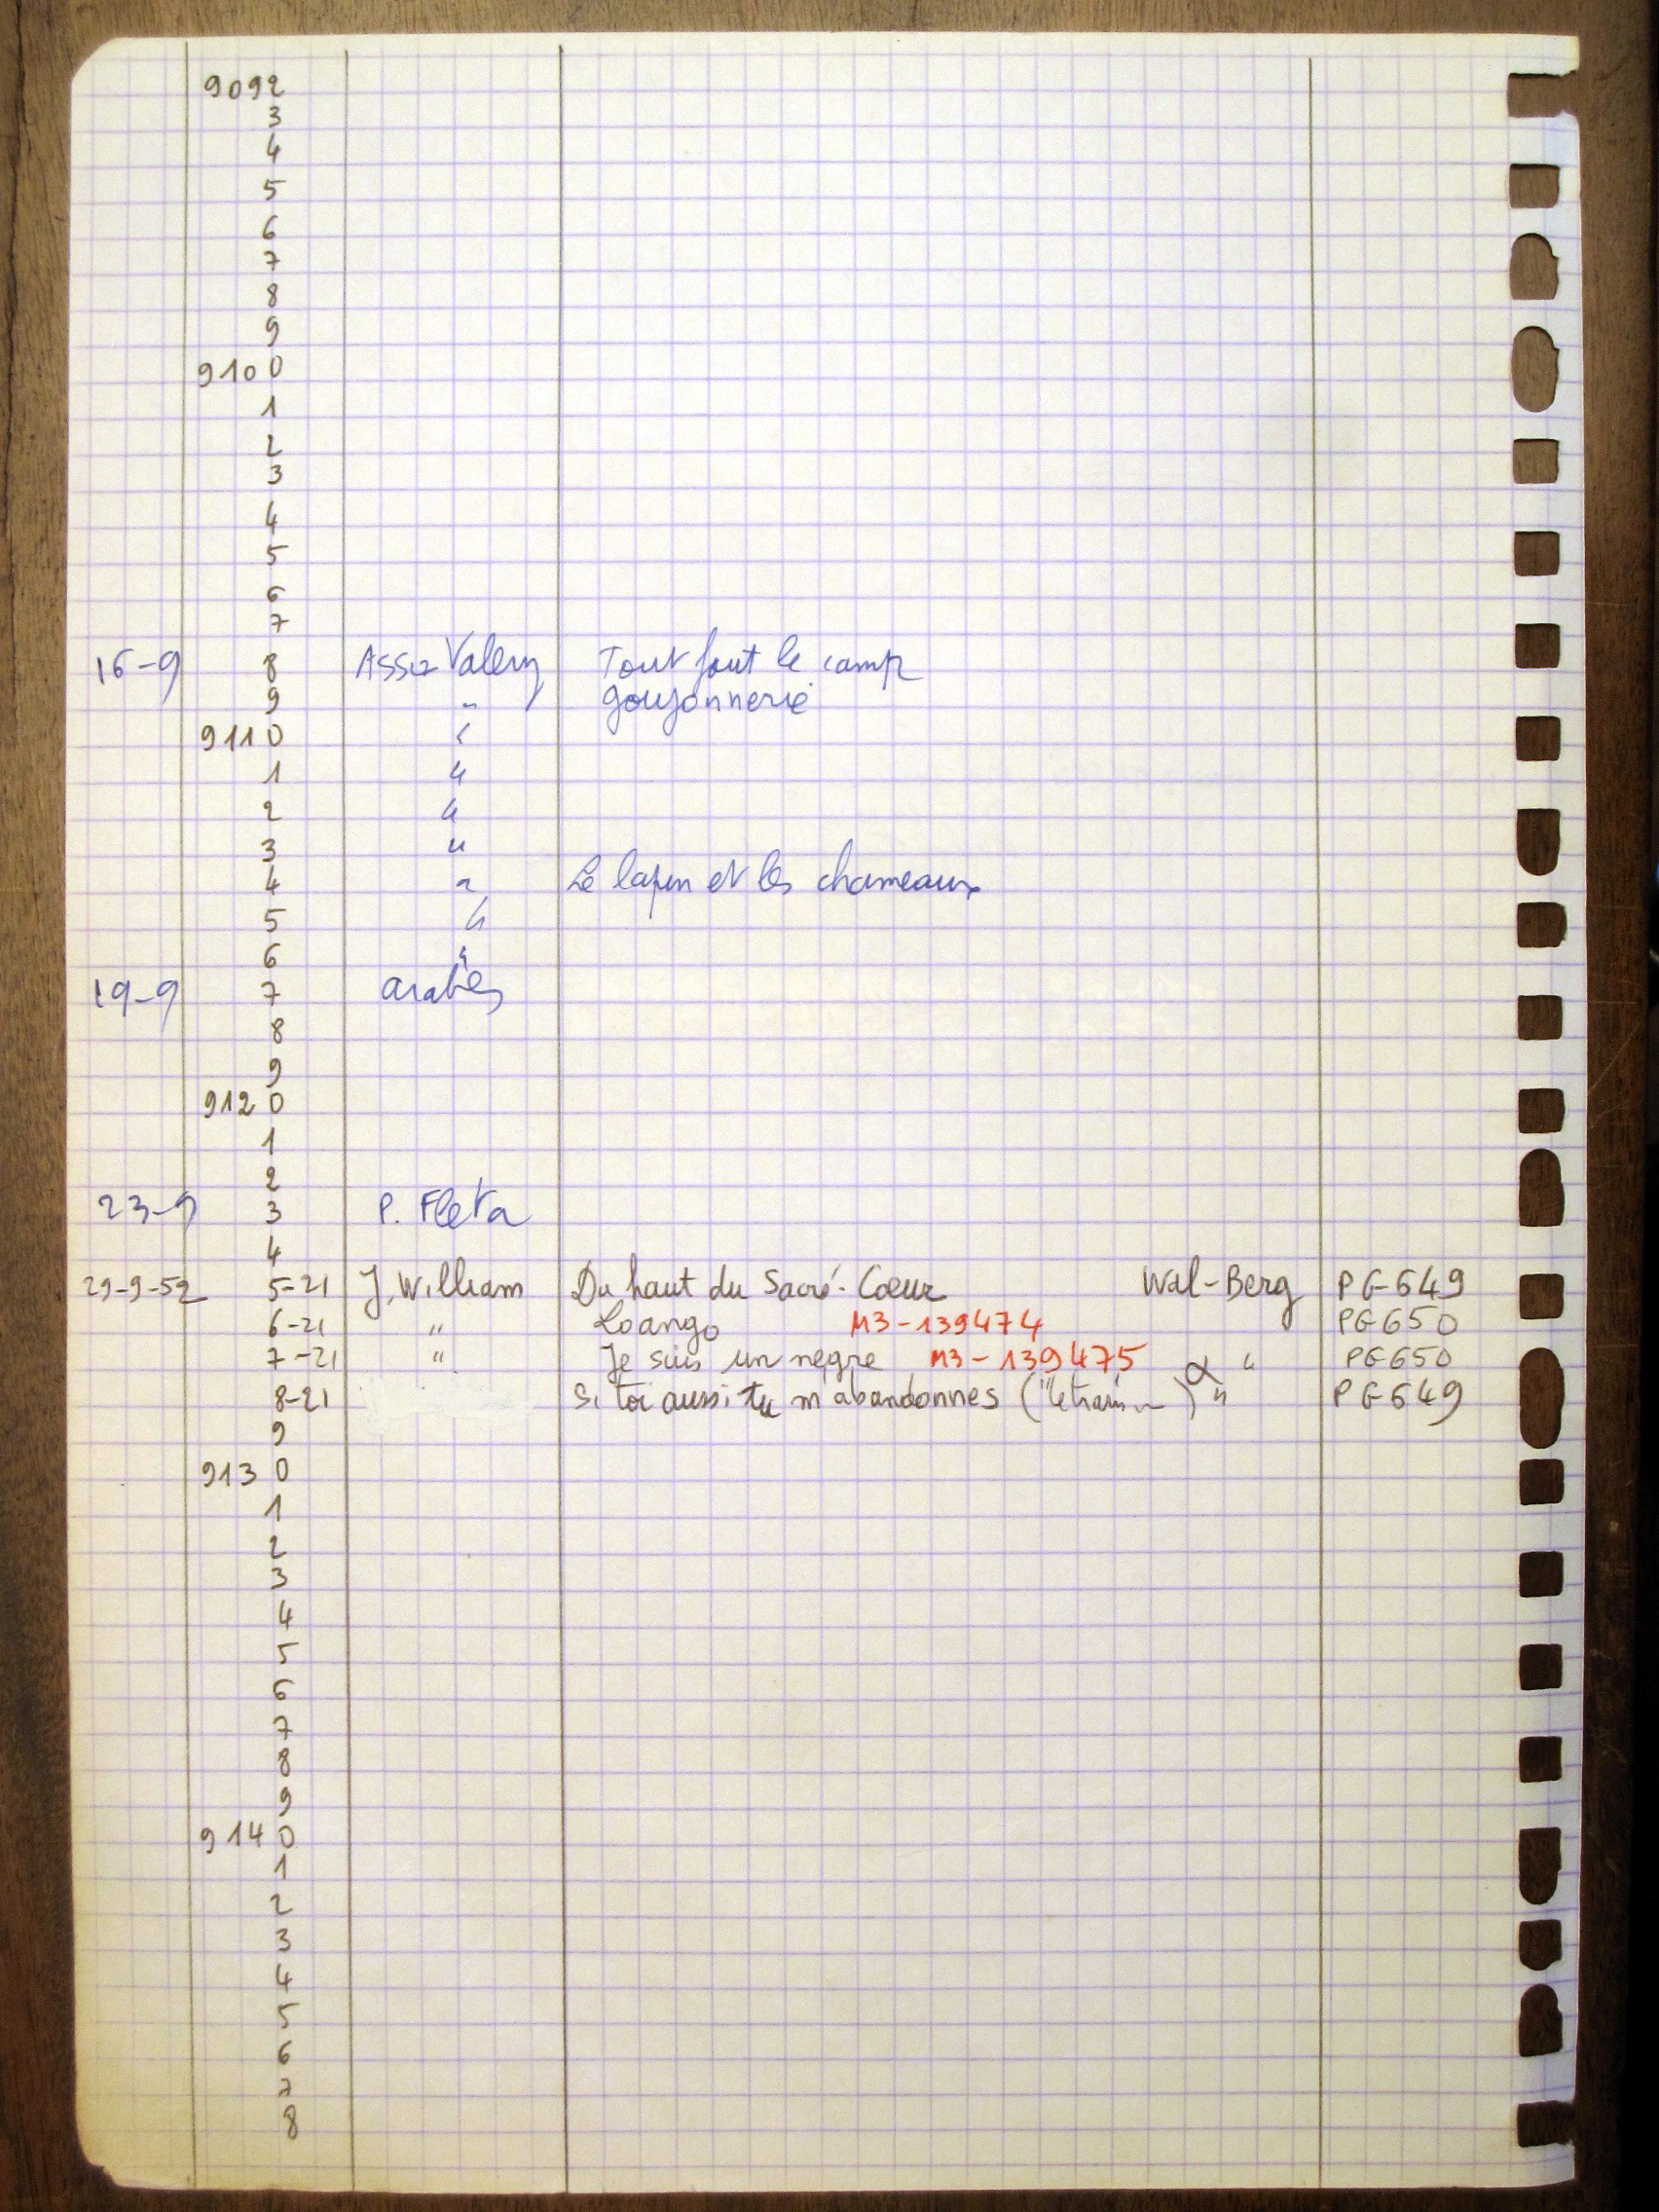 9092
3
4
5
6
7
8
9
9100
1
2
3
4
5
6
7
16-9 8 Valery Tout fout le camp
9 " goujonnerie
9110 "
1 "
2 "
3 "
4 " Le lapin et les chameaux
5 "
6 "
19-9 7 arabes
8
9
9120
1
2
23-9 3 P. Fleta
4
29-9-52 5-21 J. William Du haut du Sacré-Coeur Wal-Berg PG-649
6-21 " Loango M3-139474 PG 650
7-21 " Je suis un nègre M3-139475 " PG 650
8-21 Si toi aussi tu m'abandonnes ( ) " PG 649
9
9130
1
2
3
4
5
6
7
8
9
9140
1
2
3
4
5
6
7
8